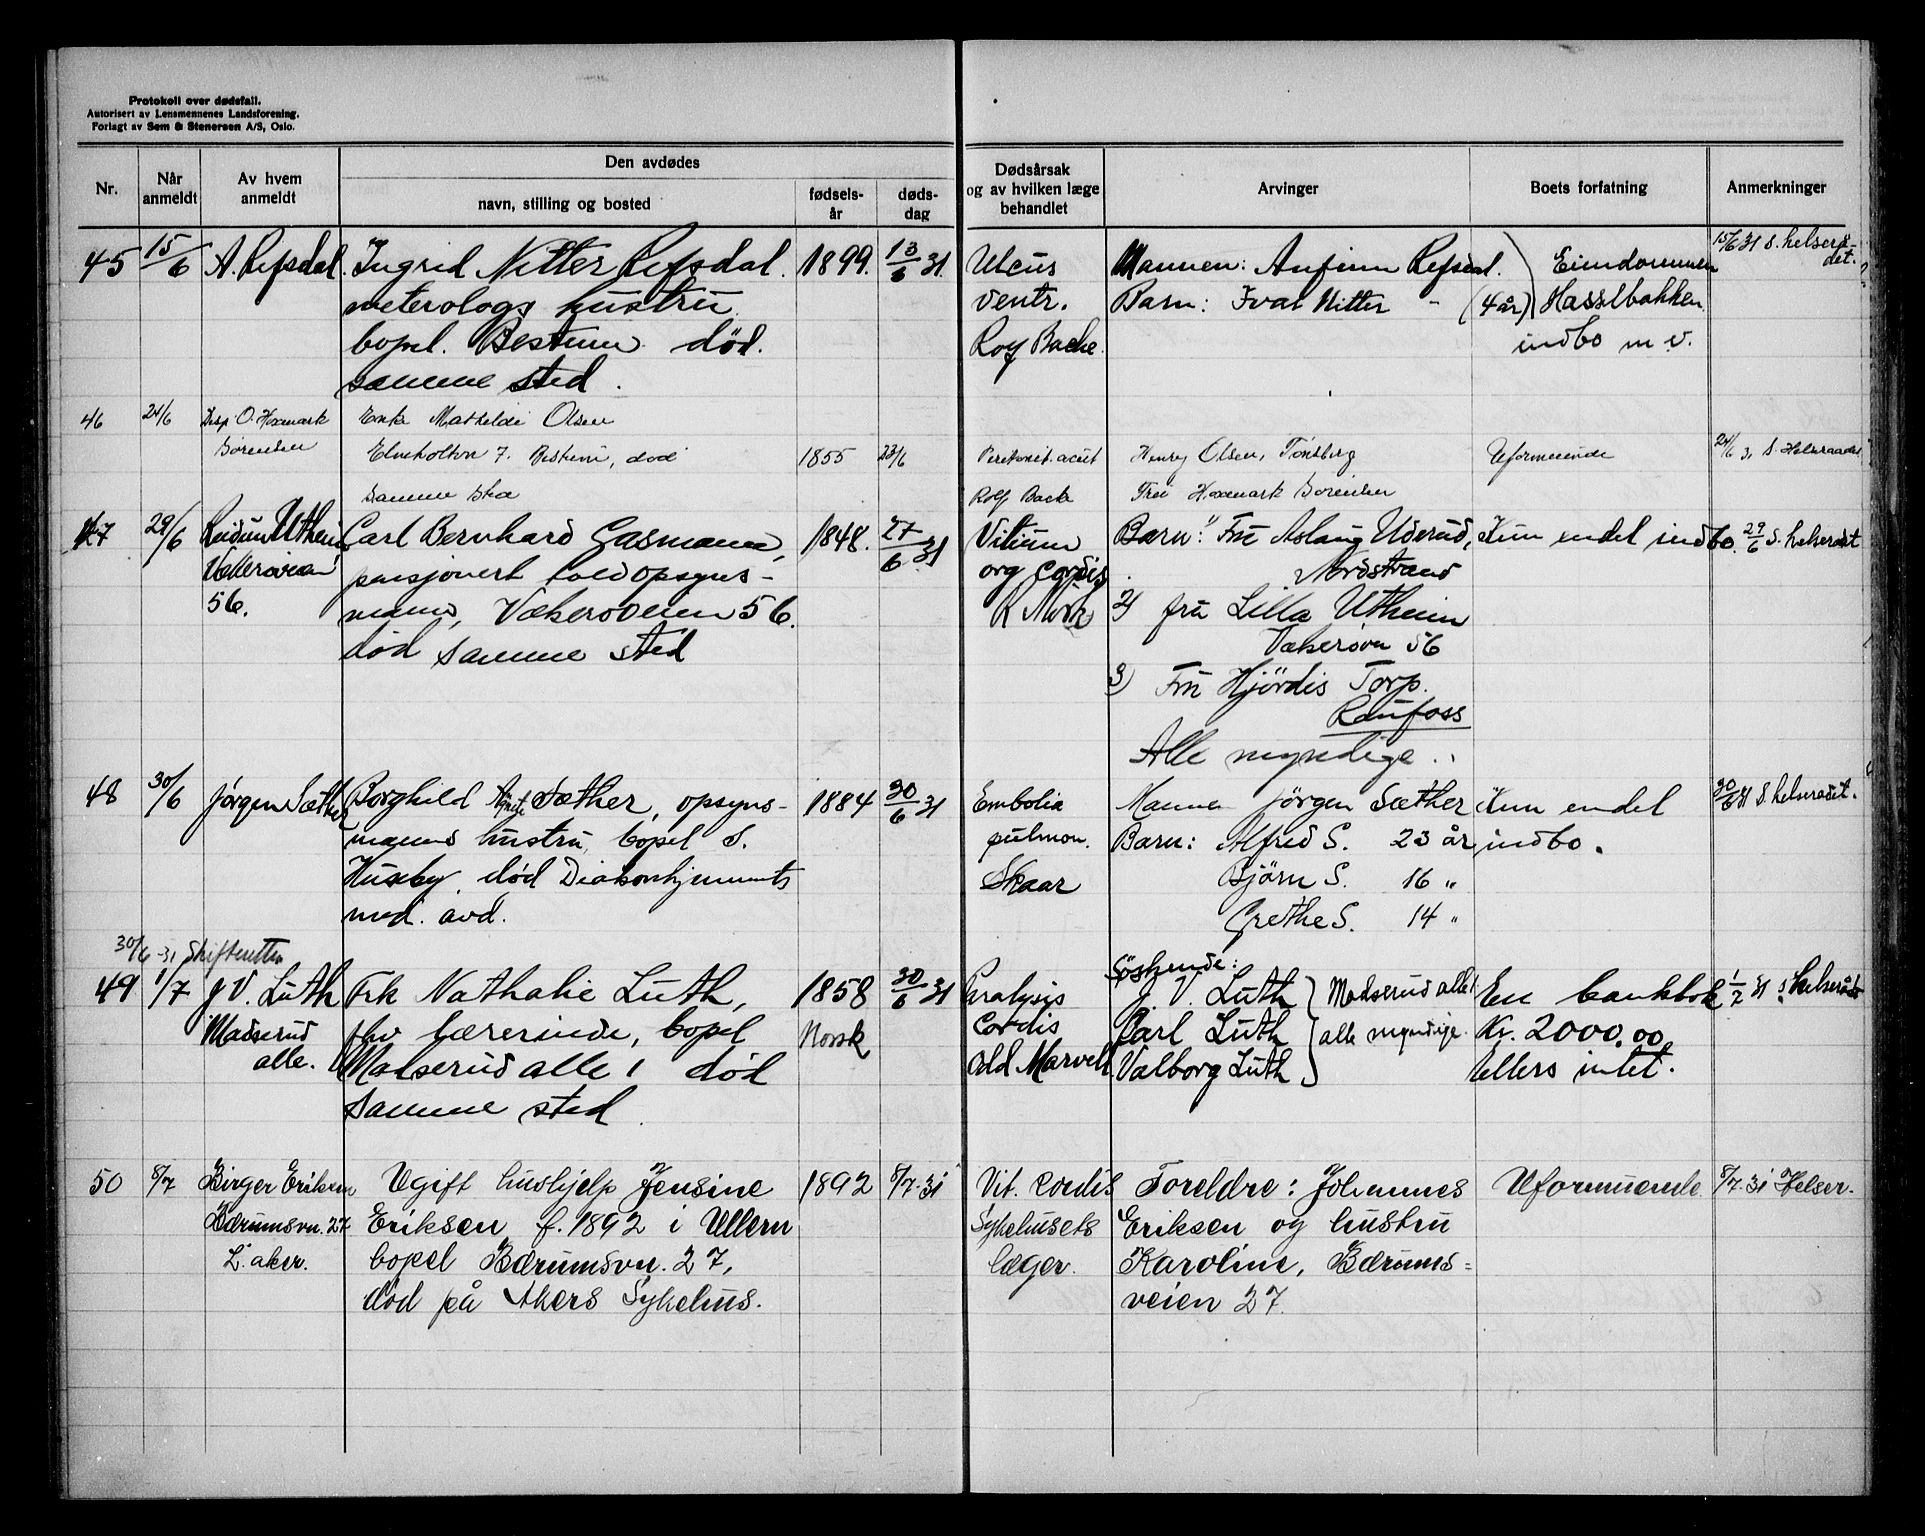 Protokoll over dødsfall.
Autorisert av Lensmennenes Landsforening.
Forlagt av Sem & Stenersen A/S, Oslo.
Nr.
Når anmeldt
Av hvem anmeldt
Den avdødes
navn, stilling og bosted
fødsels-år
døds-dag
Dødsårsak og av hvilken læge behandlet
Arvinger
Boets forfatning
Anmerkninger
45
15/6
A. Refsdal
Ingrid Nitter Refsdal.
meterologs hustru
bopel. Bestum død.
samme sted.
1899.
13/6 31
Ulcus
ventr.
Rolf Backe
Mannen: Anfinn Refsdal.
Barn: Ivar Nitter - (4 år)
Eiendommen
Hasselbakken
indbo m v.
15/6 31 S. helserå-
det.
46
24/6
Disp O. Hoxmark
Sørensen
Enke Mathilde Olsen
7. Bestum, død
samme sted
1855
23/6
Peritonit. acut
Rolf Backe
Henry Olsen, Tønsberg
Fru Hoxmark Sørensen
Uformuende
24/6 31 S. Helseraadet
47
29/6
Reidun Utheim
Vækerøveien
56.
Carl Bernhard Gasmann,
pensjonert toldopsyns-
mann, Vækerøveien 56.
død samme sted
1848.
27/6 31
Vitium
org cordis
R Mork
Barn: 1) Fru Aslaug Uderud,
Nordstrand
2) fru Lilla Utheim
Vækerøvn 56
3) Fru Hjördis Torp.
Raufoss
Alle myndige.
Kun endel indbo.
29/6 S. helserådet
48
30/6
Jørgen Sæther
Borghild Agnete Sæther, opsyns-
manns hustru, bopel S.
Huseby, død Diakonhjemmets
med. avd.
1884
30/6 31
Embolia
pulmon.
Skaar
Mannen Jörgen Sæther
Barn: Alfred S. 23 år
Bjørn S. 16 "
Grethe S. 14 "
Kun endel
indbo.
30/6 31 S. helserådet.
30/6-31 Skifteretten
49
1/7
J V. Luth
Madserud
alle.
Frk Nathalie Luth,
fhv lærerinde, bopel
Madserud alle 1 død
samme sted
1858
Norsk
30/6 31
Paralysis
cordis
Odd Marvell
Søskende:
J. V. Luth
Carl Luth
Valborg Luth
Madserud alle 1
alle myndige.
En bankbok
Kr. 2000,00
Ellers intet.
1/7 31 S helseråd
50
8/7
Birger Eriksen
Bærumsvn. 27
V. aker.
Ugift hushjelp Jensine
Eriksen f. 1892 i Ullern
bopel Bærumsvn. 27,
død på Akers Sykehus.
1892
8/7-31
Vit. cordis
Sykehusets
læger.
Foreldre: Johannes
Eriksen og hustru
Karoline, Bærums=
veien 27.
Uformuende
8/7-31 Helser.